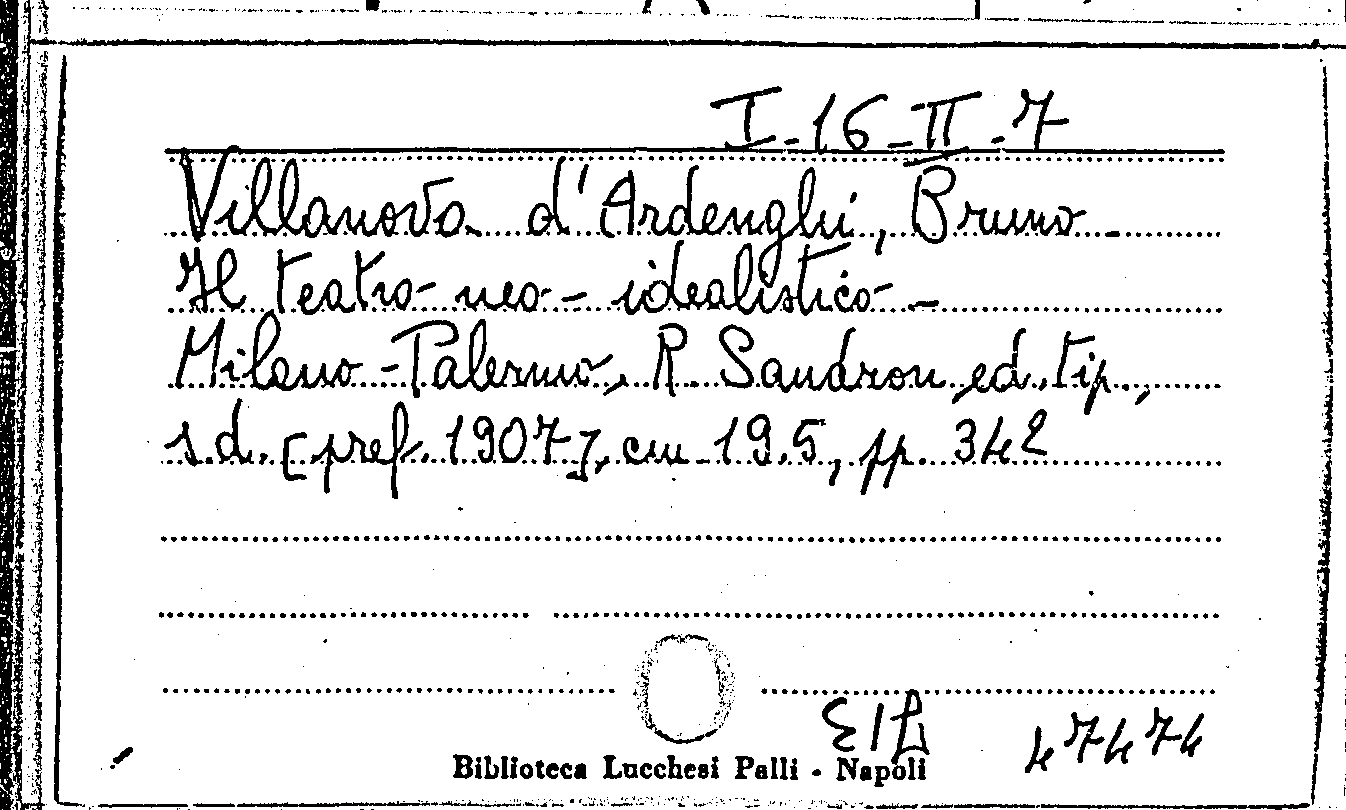 I-16-II-7
Villanova d'Ardenghi, Bruno -
Il teatro neo-idealistico -
Milano-Palermo, R. Sandron, ed. tip.,
s.d. [pref. 1907], cm. 19.5, pp. 342
47474
Biblioteca Lucchesi Palli - Napoli